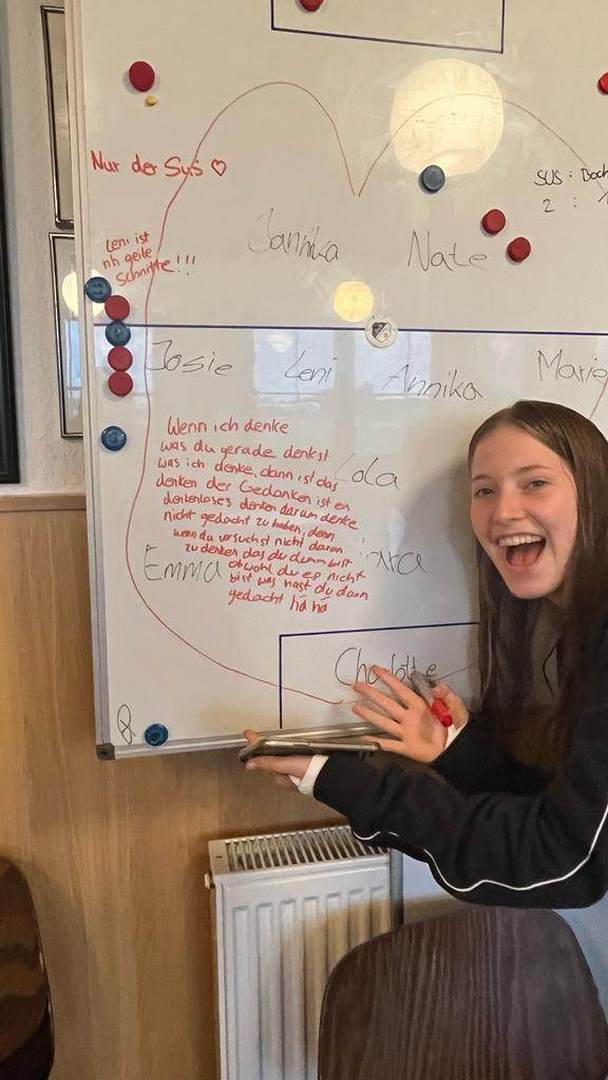 Nur der SuS ♡
SUS : Boch
2 :
Leni ist
nh geile
Schnitte!!!
Jannika Nate
Josie Leni Annika Marie
Wenn ich denke
was du gerade denkst
was ich denke, dann ist das
denken der Gedanken ist ein
denkenloses denken darum denke
nicht gedacht zu haben, denn
wenn du versuchst nicht daran
zu denken das du dumm bist
obwohl du es nicht
bist was hast du dann
gedacht há há
Lola
Emma
Charlotte